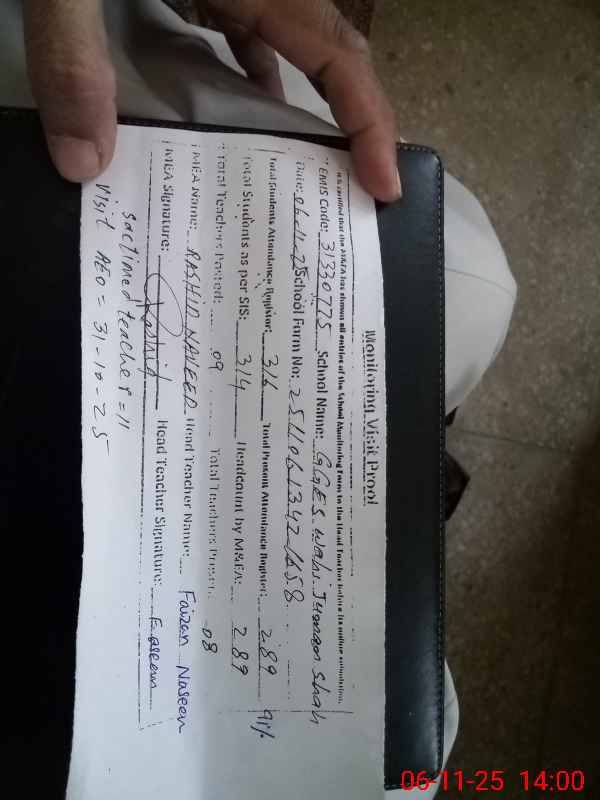 Monitoring Visit Proof
It is certified that the MEA has shown all entries of the School Monitoring Form to the Head Teacher before its online submission.
EMIS Code: 31330775 School Name: GGES. Wahi Juman Shah
Date: 06-11-25 School Form No: 2511061342-1658
Total Students Attendance Register: 316 Total Present Attendance Register: 289 91%
Total Students as per SIS: 314 Headcount by MEA: 289
Total Teachers Posted: 09 Total Teachers Present: 08
MEA Name: RASHID NAVEED Head Teacher Name: Faizan Naseen
MEA Signature: Rashid Head Teacher Signature: F.aseem
sactimed teacher = 11
Visit AEO = 31-10-25
06-11-25 14:00